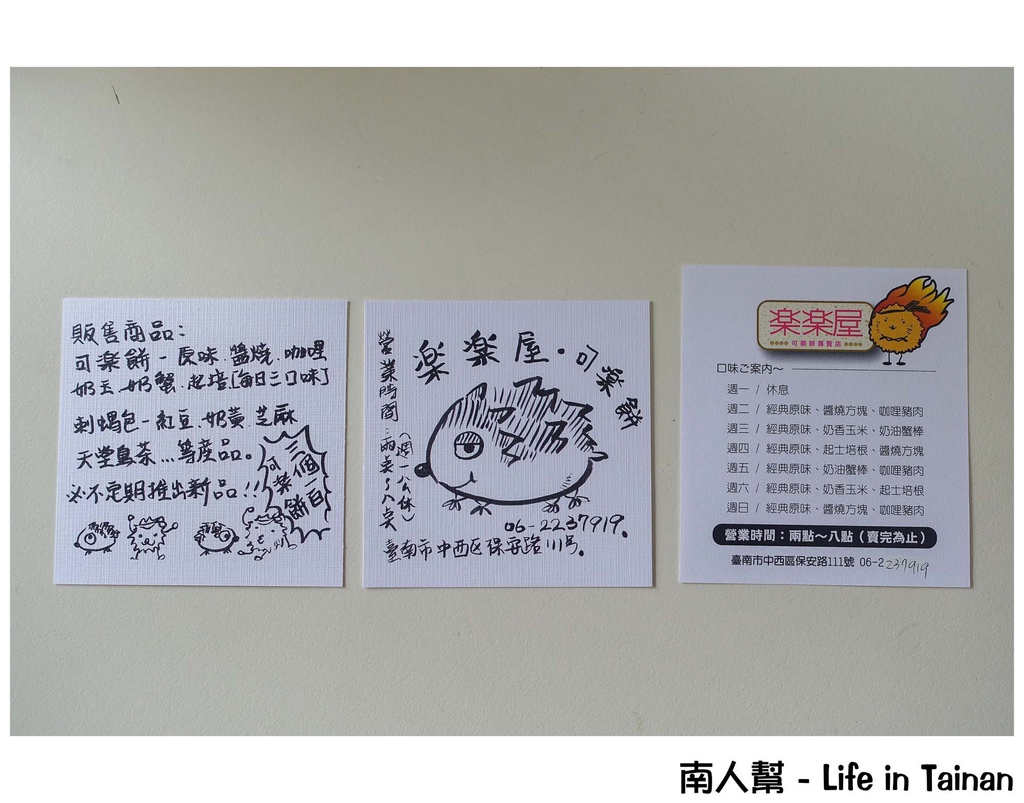 販售商品：
可楽餅－原味.醬燒.咖哩
奶玉.奶蟹.起培[每日三口味]
刺蝟包－紅豆.奶黃.芝麻
天堂鳥茶...等產品。
必不定期推出新品!!
三個一百
可楽餅
楽楽屋.可楽餅
營業時間:兩点了八点
(週一公休)
06-2237919.
臺南市中西区保安路111号。
楽楽屋
可樂餅專賣店
口味ご案内～
週一 / 休息
週二 / 經典原味、醬燒方塊、咖哩豬肉
週三 / 經典原味、奶香玉米、奶油蟹棒
週四 / 經典原味、起士培根、醬燒方塊
週五 / 經典原味、奶油蟹棒、咖哩豬肉
週六 / 經典原味、奶香玉米、起士培根
週日 / 經典原味、醬燒方塊、咖哩豬肉
營業時間：兩點～八點（賣完為止）
臺南市中西區保安路111號 06-2237919
南人幫 - Life in Tainan